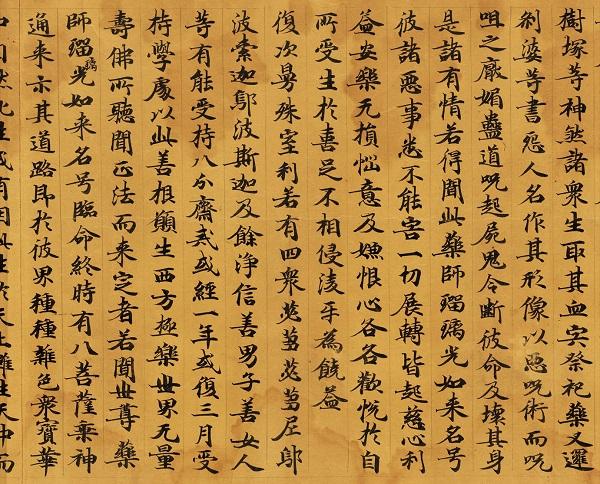 樹塚等神煞諸衆生取其血宍祭祀藥叉邏
刹婆等書怨人名作其形像以惡呪術而呪
咀之厭媚蠱道呪起屍鬼令斷彼命及壞其身
是諸有情若得聞此藥師瑠璃光如来名号
彼諸惡事悉不能害一切展轉皆起慈心利
益安樂无損惱意及嫌恨心各各歡悦於自
所受生於喜足不相侵淩乎為饒益
復次曼殊室利若有四衆苾蒭苾蒭尼鄔
波索迦鄔波斯迦及餘淨信善男子善女人
等有能受持八分齋戒或經一年或復三月受
持學處以此善根願生西方極樂世界无量
壽佛所聽聞正法而未定者若聞世尊藥
師瑠璃光如来名号臨命終時有八菩薩乗神
通来示其道路即於彼界種種雜色衆寶華